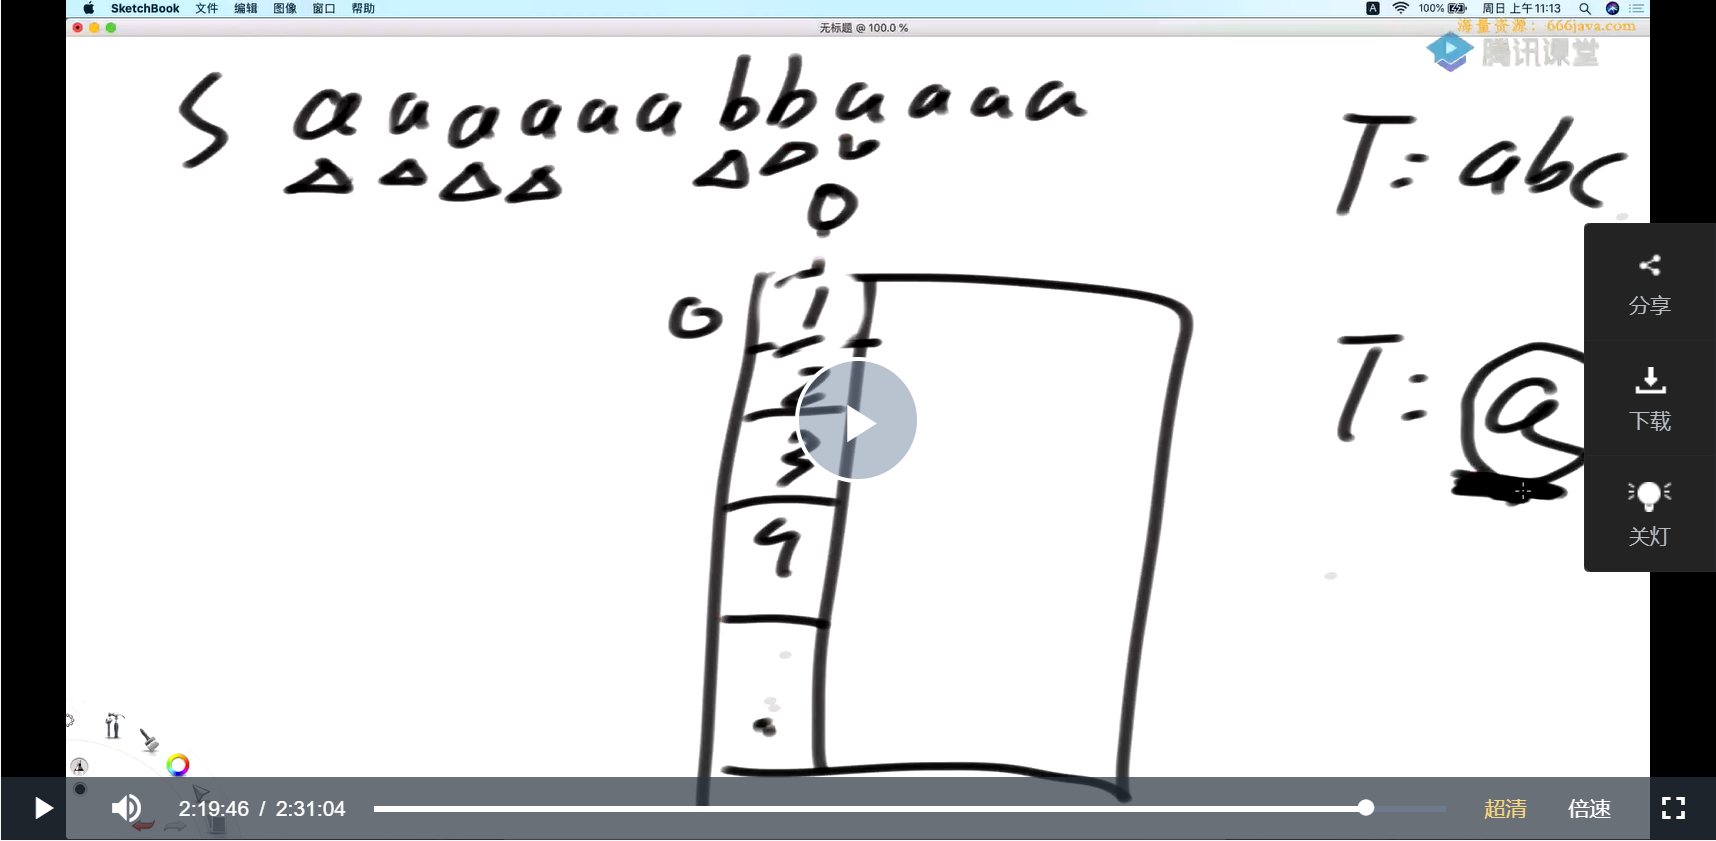 SketchBook 文件 编辑 图像 窗口 帮助 A 100% 周日 上午11:13
无标题 @ 100.0 %
海量资源：666java.com
腾讯课堂
S a a a a a a b b a a a a
T: abc
0
0 1
2
3
4
T: a
分享
下载
关灯
2:19:46 / 2:31:04 超清 倍速